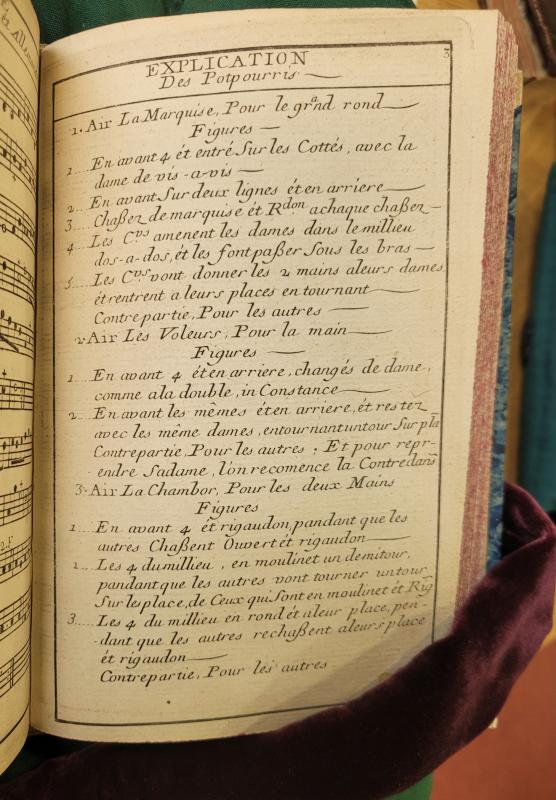 3
EXPLICATION
Des Potpourris
1. Air La Marquise, Pour le grand rond
Figures
1... En avant 4 ét entré Sur les Cottés, avec la
dame de vis-a-vis
2... En avant Sur deux lignes ét en arriere
3... Chaßez de marquise ét Rdon achaque chaßez
4... Les Cvrs amenent les dames dans le millieu
dos-a-dos, ét les font paßer Sous les bras
5... Les Cvrs vont donner les 2 mains aleurs dames,
ét rentrent a leurs places en tournant
Contrepartie, Pour les autres
2. Air Les Voleurs, Pour la main
Figures
1... En avant 4 ét en arriere, changés de dame,
comme ala double, in Constance
2... En avant les mêmes ét en arriere, ét restez
avec les même dames, entournant untour Sur pla
Contrepartie, Pour les autres; Et pour repr-
endre Sadame, l'ón recomence la Contredans
3. Air La Chambor, Pour les deux Mains
Figures
1... En avant 4 ét rigaudon, pandant que les
autres Chaßent Ouvert ét rigaudon
2... Les 4 dumillieu, en moulinet un demitour,
pandant que les autres vont tourner untour
Sur lesplace, de Ceux qui Sont en moulinet ét Rig
3... Les 4 du millieu en rond ét aleur place, pen-
-dant que les autres rechaßent aleurs place
ét rigaudon
Contrepartie, Pour les autres